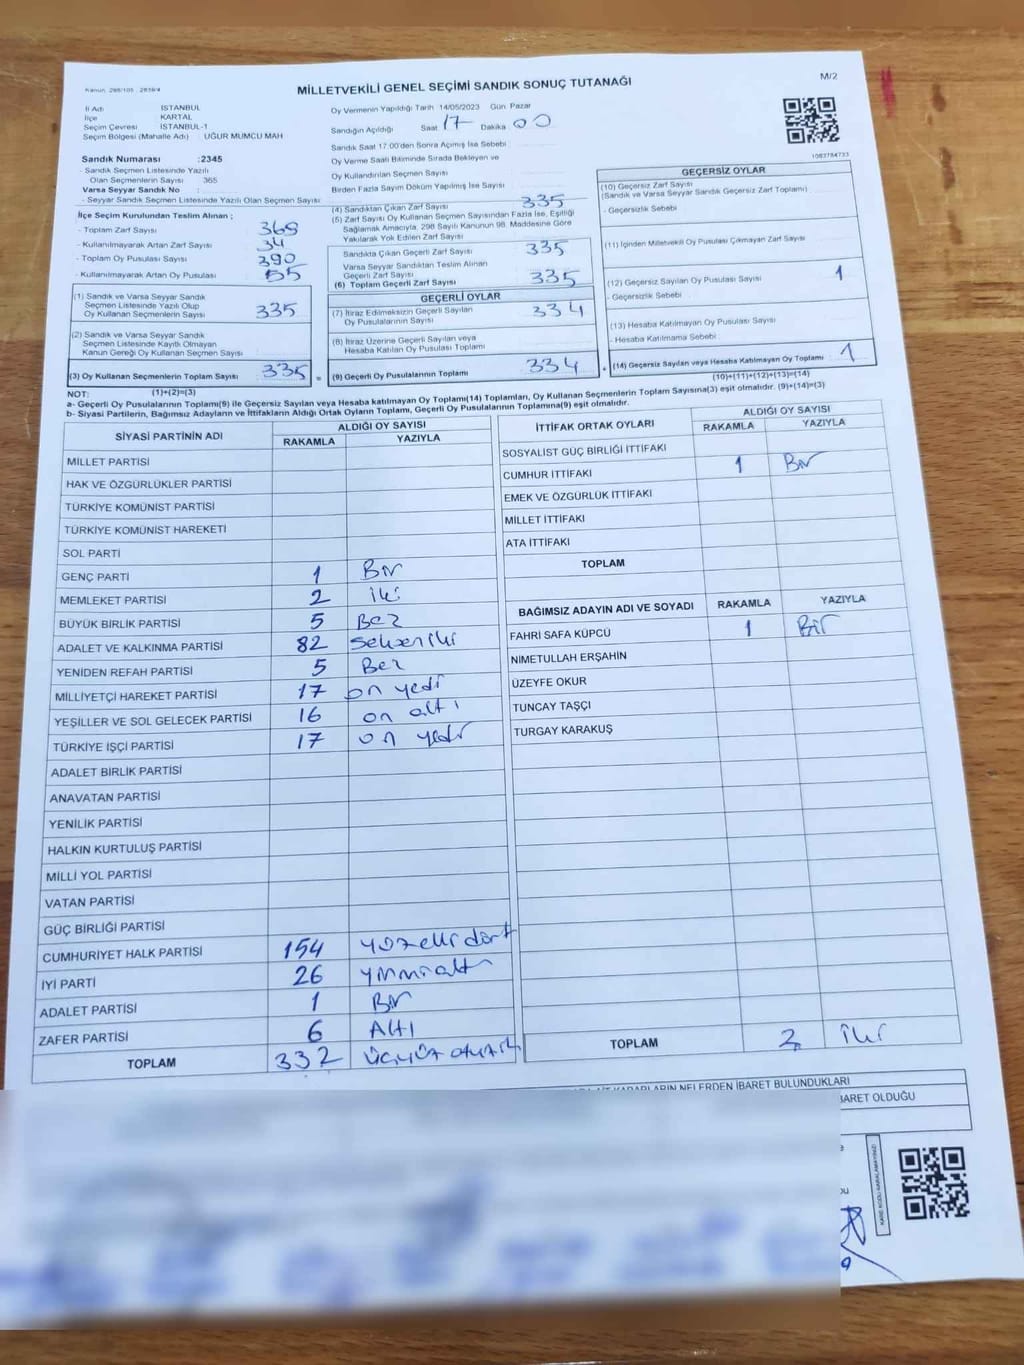 Kanun: 298/105 , 2839/4
MİLLETVEKİLİ GENEL SEÇİMİ SANDIK SONUÇ TUTANAĞI
M/2
İl Adı İSTANBUL
İlçe KARTAL
Seçim Çevresi İSTANBUL-1
Seçim Bölgesi (Mahalle Adı) UĞUR MUMCU MAH
Sandık Numarası :2345
- Sandık Seçmen Listesinde Yazılı
Olan Seçmenlerin Sayısı 365
Varsa Seyyar Sandık No :
- Seyyar Sandık Seçmen Listesinde Yazılı Olan Seçmen Sayısı
İlçe Seçim Kurulundan Teslim Alınan ;
- Toplam Zarf Sayısı 369
- Kullanılmayarak Artan Zarf Sayısı 34
- Toplam Oy Pusulası Sayısı 390
- Kullanılmayarak Artan Oy Pusulası 55
(1) Sandık ve Varsa Seyyar Sandık
Seçmen Listesinde Yazılı Olup
Oy Kullanan Seçmenlerin Sayısı 335
(2) Sandık ve Varsa Seyyar Sandık
Seçmen Listesinde Kayıtlı Olmayan
Kanun Gereği Oy Kullanan Seçmen Sayısı
(3) Oy Kullanan Seçmenlerin Toplam Sayısı 335
(1)+(2)=(3)
Oy Vermenin Yapıldığı Tarih 14/05/2023 Gün Pazar
Sandığın Açıldığı Saat 17 Dakika 00
Sandık Saat 17:00'den Sonra Açımış İse Sebebi
Oy Verme Saati Bitiminde Sırada Bekleyen ve
Oy Kullandırılan Seçmen Sayısı
Birden Fazla Sayım Döküm Yapılmış İse Sayısı
(4) Sandıktan Çıkan Zarf Sayısı 335
(5) Zarf Sayısı Oy Kullanan Seçmen Sayısından Fazla İse, Eşitliği
Sağlamak Amacıyla, 298 Sayılı Kanunun 98. Maddesine Göre
Yakılarak Yok Edilen Zarf Sayısı
Sandıkta Çıkan Geçerli Zarf Sayısı 335
Varsa Seyyar Sandıktan Teslim Alınan
Geçerli Zarf Sayısı
(6) Toplam Geçerli Zarf Sayısı 335
GEÇERLİ OYLAR
(7) İtiraz Edilmeksizin Geçerli Sayılan
Oy Pusulalarının Sayısı 334
(8) İtiraz Üzerine Geçerli Sayılan veya
Hesaba Katılan Oy Pusulası Toplamı
= (9) Geçerli Oy Pusulalarının Toplamı 334
1083784733
GEÇERSİZ OYLAR
(10) Geçersiz Zarf Sayısı
(Sandık ve Varsa Seyyar Sandık Geçersiz Zarf Toplamı)
- Geçersizlik Sebebi
(11) İçinden Milletvekili Oy Pusulası Çıkmayan Zarf Sayısı
(12) Geçersiz Sayılan Oy Pusulası Sayısı 1
- Geçersizlik Sebebi
(13) Hesaba Katılmayan Oy Pusulası Sayısı
- Hesaba Katılmama Sebebi
+ (14) Geçersiz Sayılan veya Hesaba Katılmayan Oy Toplamı 1
(10)+(11)+(12)+(13)=(14)
NOT:
a- Geçerli Oy Pusulalarının Toplamı(9) ile Geçersiz Sayılan veya Hesaba katılmayan Oy Toplamı(14) Toplamları, Oy Kullanan Seçmenlerin Toplam Sayısına(3) eşit olmalıdır. (9)+(14)=(3)
b- Siyasi Partilerin, Bağımsız Adayların ve İttifakların Aldığı Ortak Oyların Toplamı, Geçerli Oy Pusulalarının Toplamına(9) eşit olmalıdır.
SİYASİ PARTİNİN ADI ALDIĞI OY SAYISI
RAKAMLA YAZIYLA
MİLLET PARTİSİ
HAK VE ÖZGÜRLÜKLER PARTİSİ
TÜRKİYE KOMÜNİST PARTİSİ
TÜRKİYE KOMÜNİST HAREKETİ
SOL PARTİ
GENÇ PARTİ 1 Bir
MEMLEKET PARTİSİ 2 iki
BÜYÜK BİRLİK PARTİSİ 5 Beş
ADALET VE KALKINMA PARTİSİ 82 Seksen iki
YENİDEN REFAH PARTİSİ 5 Beş
MİLLİYETÇİ HAREKET PARTİSİ 17 on yedi
YEŞİLLER VE SOL GELECEK PARTİSİ 16 on altı
TÜRKİYE İŞÇİ PARTİSİ 17 on yedi
ADALET BİRLİK PARTİSİ
ANAVATAN PARTİSİ
YENİLİK PARTİSİ
HALKIN KURTULUŞ PARTİSİ
MİLLİ YOL PARTİSİ
VATAN PARTİSİ
GÜÇ BİRLİĞİ PARTİSİ
CUMHURİYET HALK PARTİSİ 154 yüzelli dört
İYİ PARTİ 26 yirmialtı
ADALET PARTİSİ 1 Bir
ZAFER PARTİSİ 6 Altı
TOPLAM 332 üçyüz
İTTİFAK ORTAK OYLARI ALDIĞI OY SAYISI
RAKAMLA YAZIYLA
SOSYALİST GÜÇ BİRLİĞİ İTTİFAKI
CUMHUR İTTİFAKI 1 Bir
EMEK VE ÖZGÜRLÜK İTTİFAKI
MİLLET İTTİFAKI
ATA İTTİFAKI
TOPLAM
BAĞIMSIZ ADAYIN ADI VE SOYADI RAKAMLA YAZIYLA
FAHRİ SAFA KÜPCÜ 1 Bir
NİMETULLAH ERŞAHİN
ÜZEYFE OKUR
TUNCAY TAŞÇI
TURGAY KARAKUŞ
TOPLAM 2 iki
KARARLARIN NELERDEN İBARET BULUNDUKLARI
OLDUĞU
KARE KODU KARALAMAYINIZ!